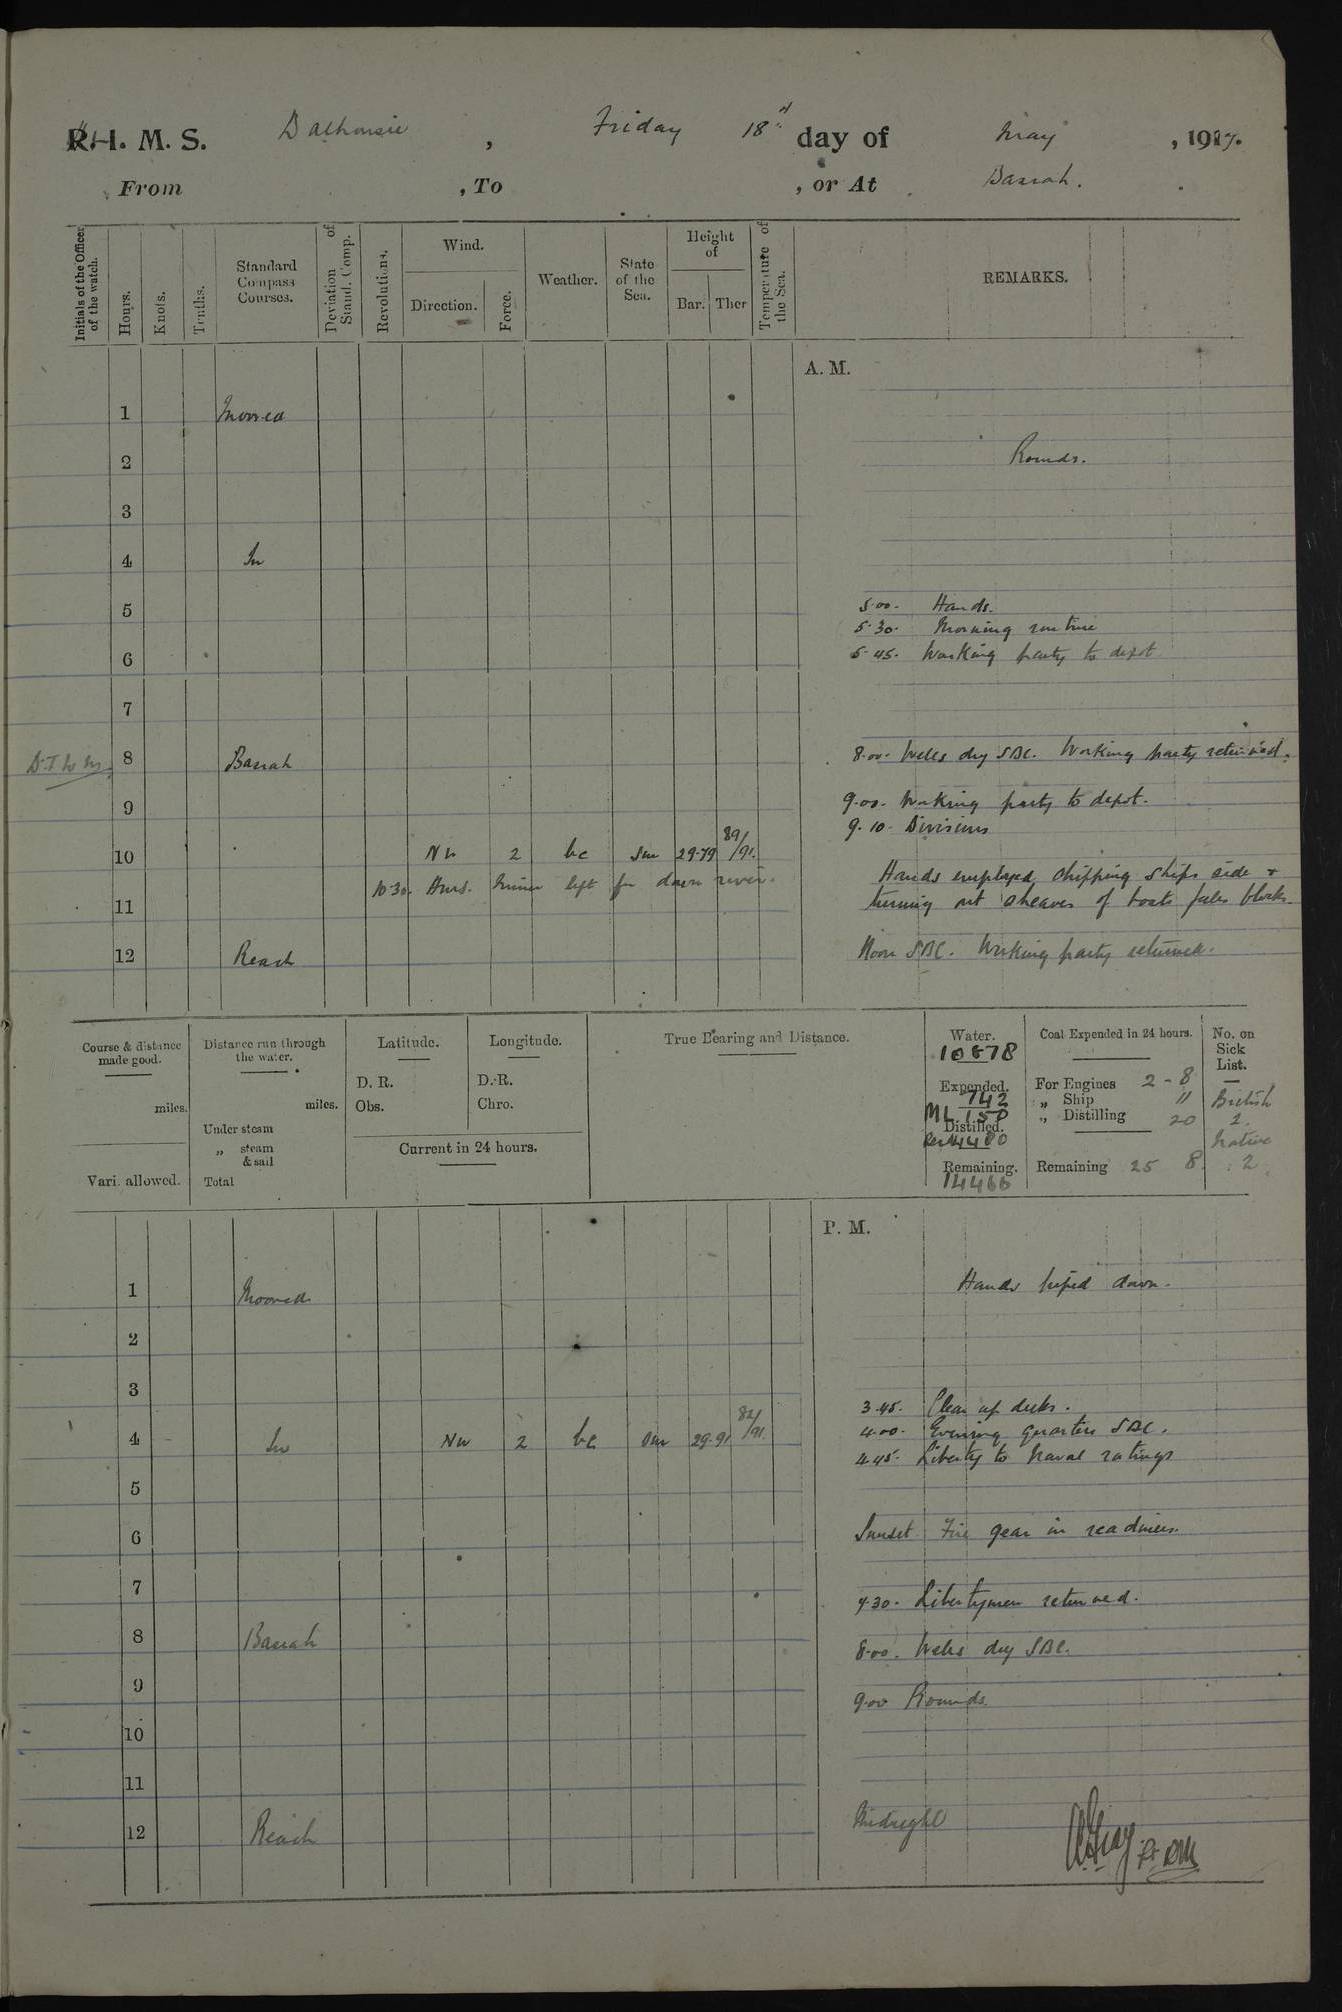 R. I. M. S. Dalhousie, Friday 18th day of May, 1917.
From , To , or At Basrah.
Initials of the Officer of the watch.
Hours.
Knots.
Tenths.
Standard Compass Courses.
Deviation of Stand. Comp.
Revolutions.
Wind.
Direction.
Force.
Weather.
State of the Sea.
Height of
Bar. Ther
Temperature of the Sea.
REMARKS.
A. M.
1 Moored
2 Rounds.
3
4 In
5 5.00. Hands.
5.30. Morning routine
6 5.45. Working party to depot
7
8 Basrah 8.00. Wells dry SBC. Working party returned.
9 9.00. Working party to depot.
9.10. Divisions
10 NW 2 bc Sm 29.79 89/91.
10.30. HmS. left for down river.
Hands employed chipping ships side &
11 turning out sheaves of boats falls blocks.
12 Reach Noon SBC. Working party returned.
Course & distance made good.
miles.
Vari. allowed.
Distance run through the water.
miles.
Under steam
„ steam & sail
Total
Latitude.
D. R.
Obs.
Longitude.
D. R.
Chro.
Current in 24 hours.
True Bearing and Distance.
Water.
10678
Expended.
742
ML 150
Distilled.
Remaining.
14466
Coal Expended in 24 hours.
For Engines 2 - 8
„ Ship 11
„ Distilling 20
Remaining 25 8.
No. on Sick List.
British
2.
Native
2
P. M.
1 Moored Hands piped down.
2
3 3.45. Clear up decks.
4 In NW 2 bc Sm 29.91 82/91. 4.00. Evening quarters SBC.
4.45. Liberty to Naval ratings
5
6 Sunset Fire gear in readiness.
7 7.30. Libertymen returned.
8 Basrah 8.00. Wells dry SBC.
9 9.00 Rounds.
10
11
12 Reach Midnight